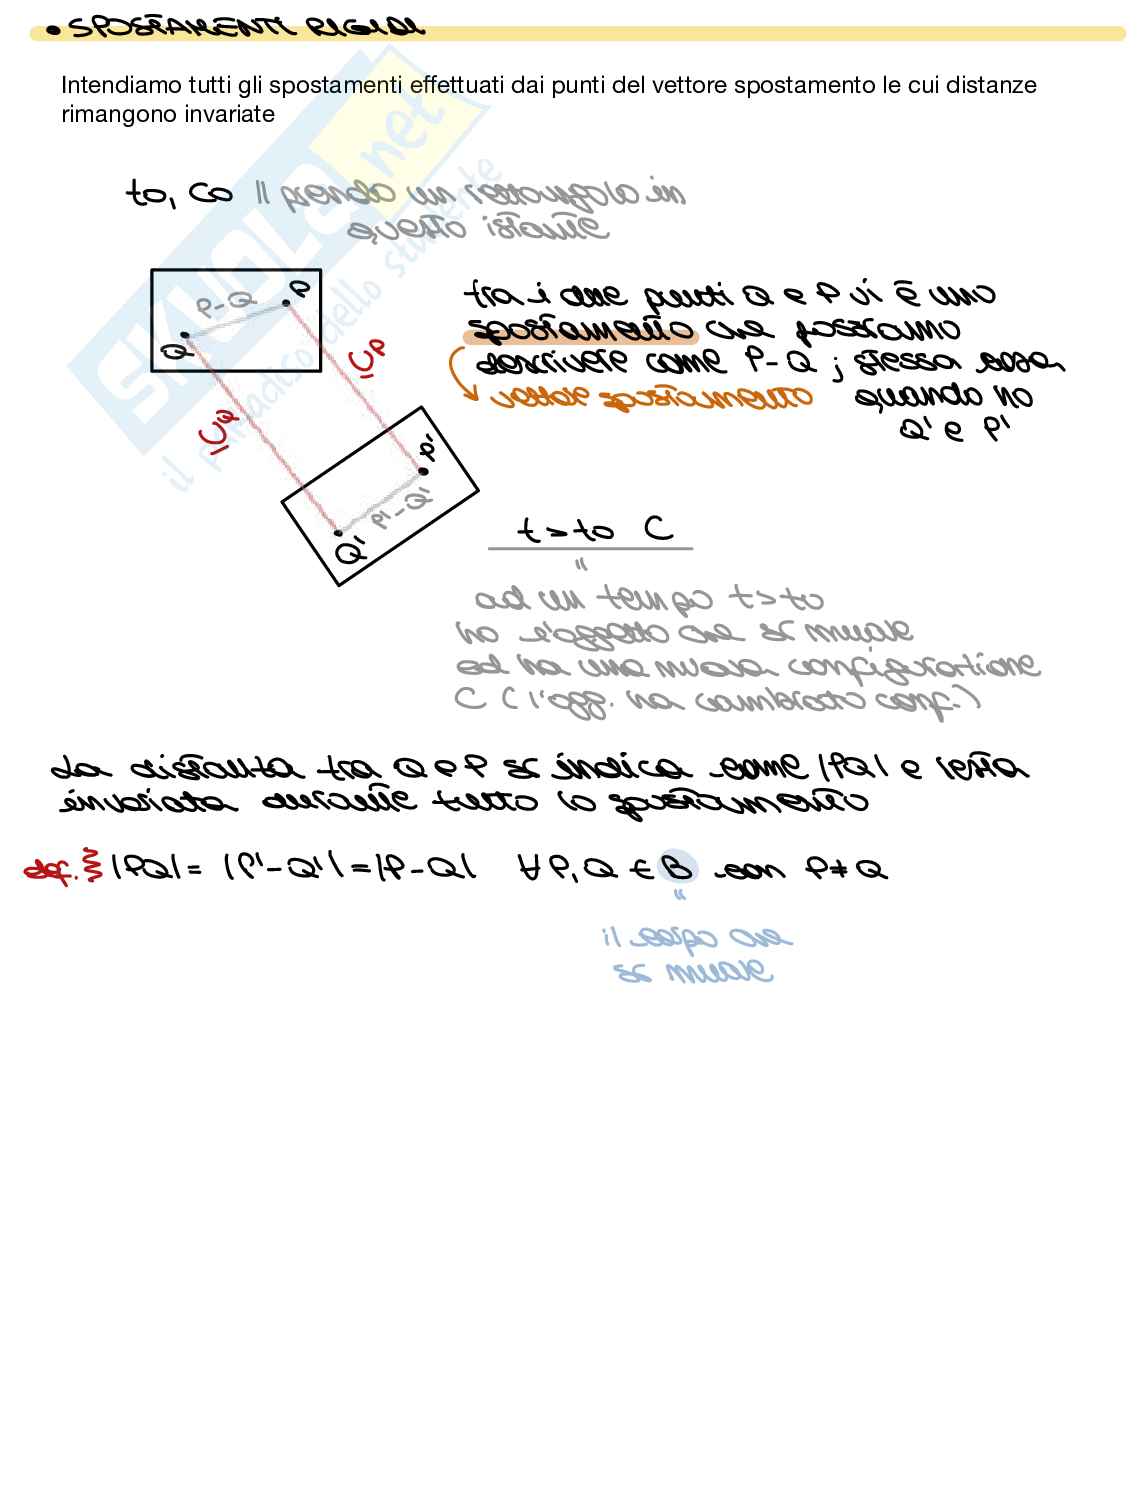 • SPOSTAMENTI RIGIDI
Intendiamo tutti gli spostamenti effettuati dai punti del vettore spostamento le cui distanze
rimangono invariate
SKUOLA.net
il paradiso dello studente
to, Co || prendo un rettangolo in
questo istante
P-Q
P
Q
UP
UQ
tra i due punti Q e P vi è uno
spostamento che possiamo
descrivere come P-Q ; stessa cosa
vettore spostamento quando ho
Q' e P'
P'
P'-Q'
Q'
t>to C
"
ad un tempo t>to
ho l'oggetto che si muove
ed ha una nuova configurazione
C (l'ogg. ha cambiato conf.)
La distanza tra Q e P si indica come |PQ| e resta
invariata durante tutto lo spostamento
def. |PQ| = |P'-Q'| = |P-Q| ∀ P, Q ∈ B con P≠Q
"
il corpo che
si muove